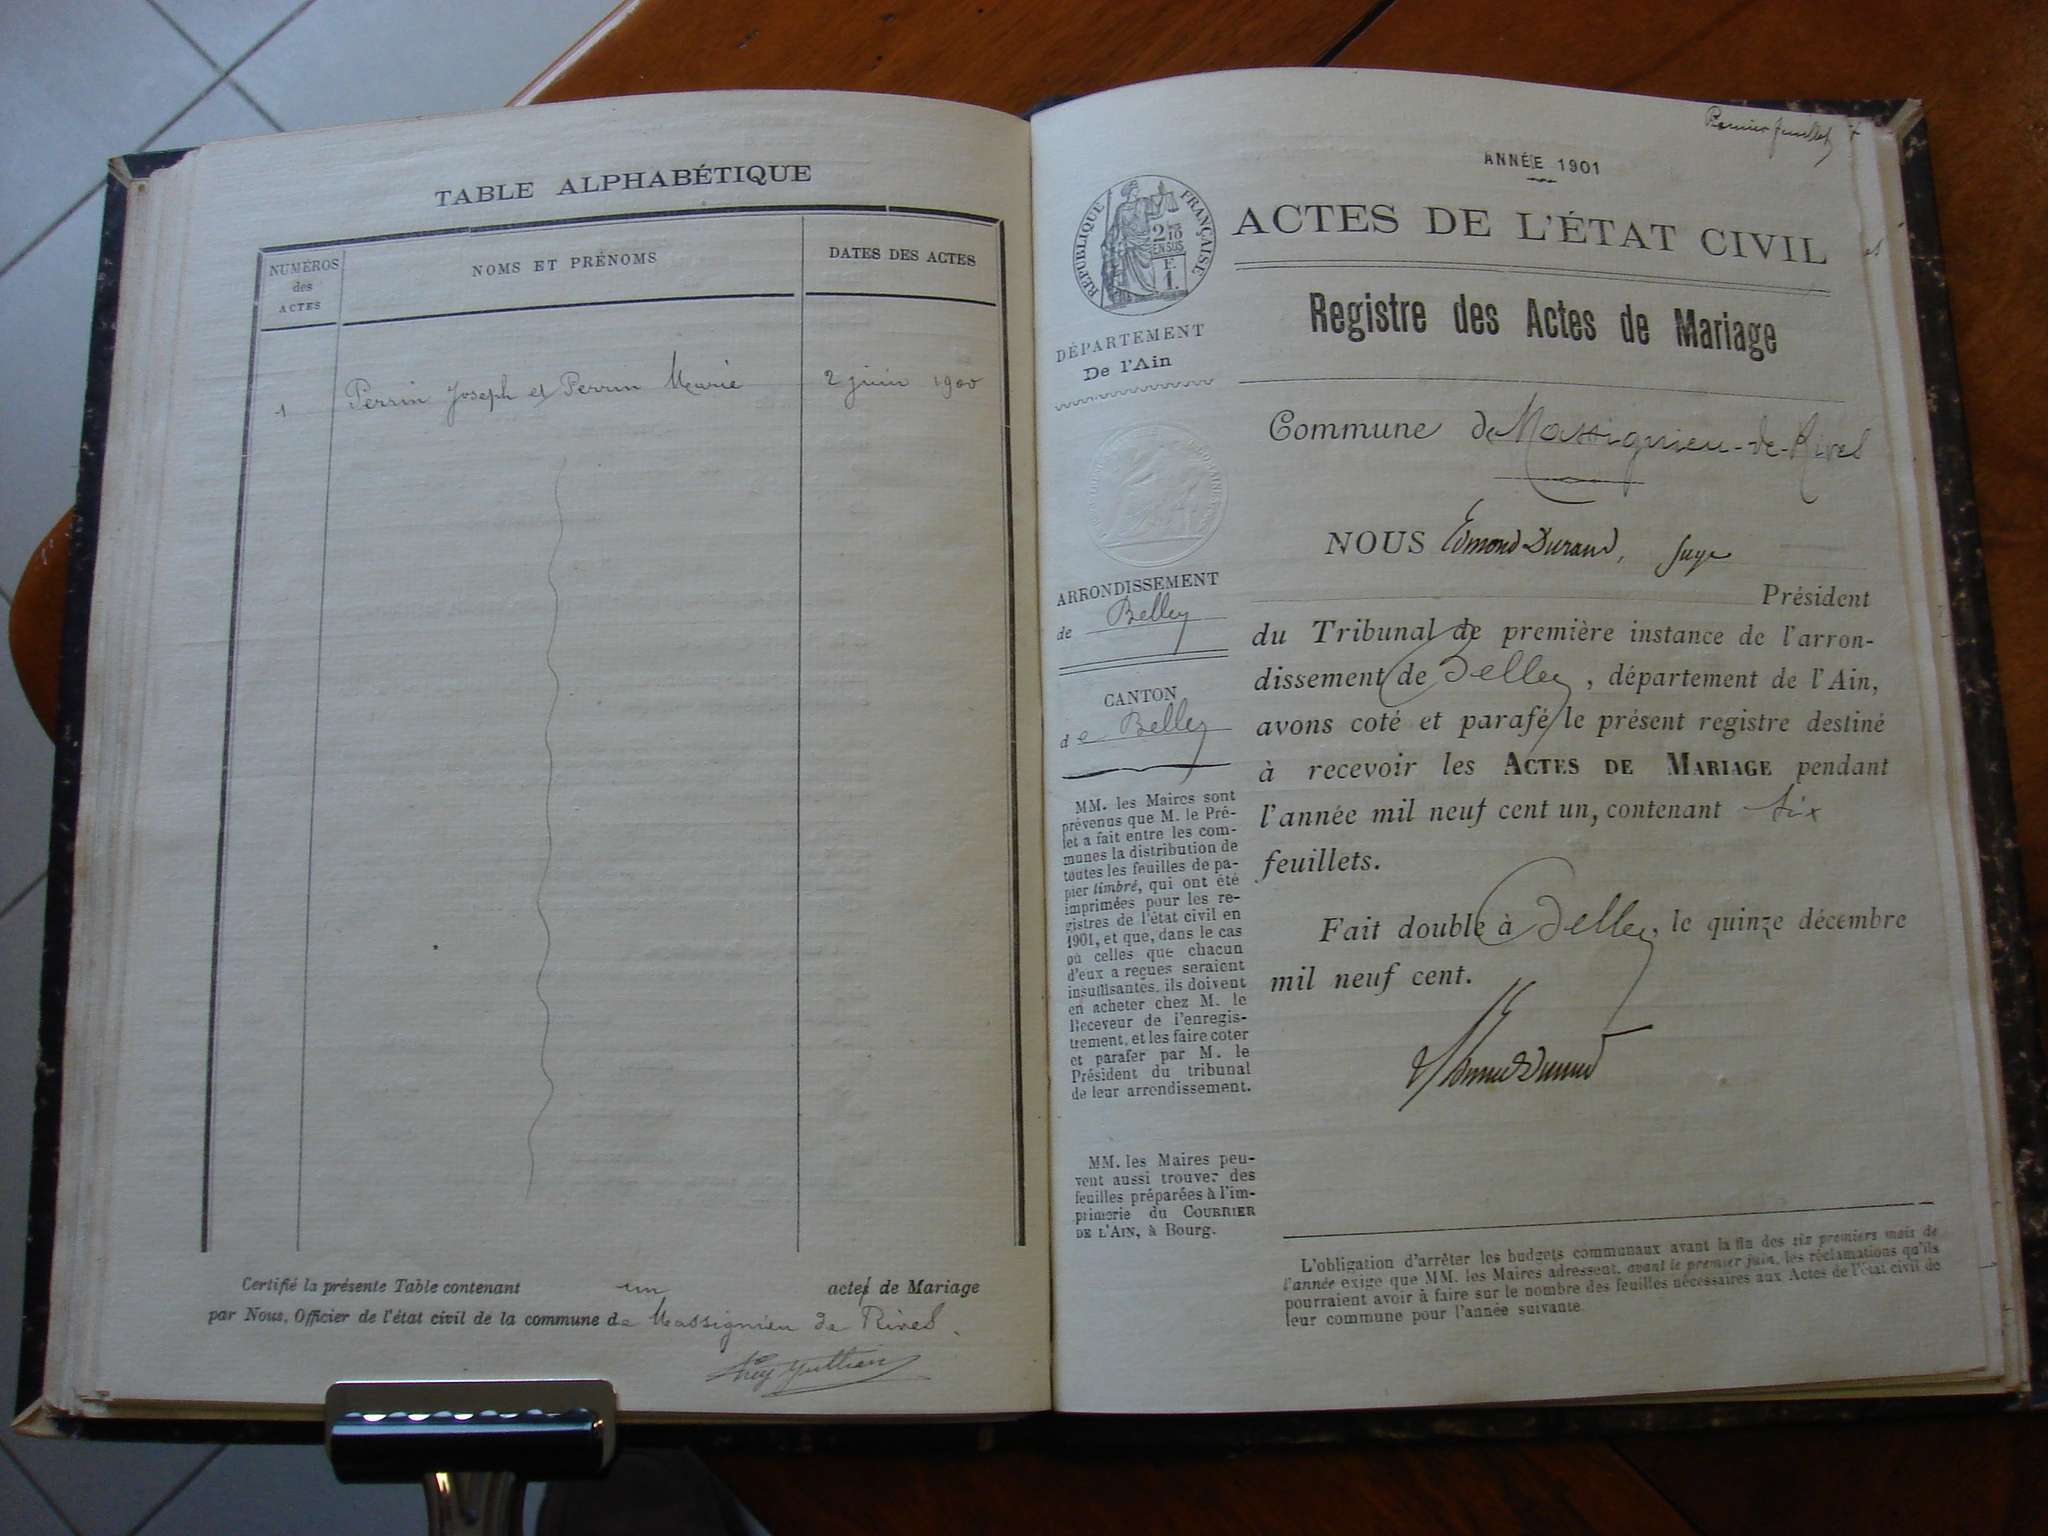 TABLE ALPHABÉTIQUE
NUMÉROS
des
ACTES
NOMS ET PRÉNOMS
DATES DES ACTES
1 Perrin Joseph et Perrin Marie 2 juin 1900
Certifié la présente Table contenant un actes de Mariage
par Nous, Officier de l'état civil de la commune de Massignieu de Rives.
Premier feuillet
ANNÉE 1901
RÉPUBLIQUE FRANÇAISE
ACTES DE L'ÉTAT CIVIL
Registre des Actes de Mariage
DÉPARTEMENT
De l'Ain
Commune de Massignieu-de-Rives
NOUS Edmond Durand, Juge
Président
du Tribunal de première instance de l'arron-
dissement de Belley, département de l'Ain,
avons coté et parafé le présent registre destiné
à recevoir les ACTES DE MARIAGE pendant
l'année mil neuf cent un, contenant six
feuillets.
Fait double à Belley, le quinze décembre
mil neuf cent.
ARRONDISSEMENT
de Belley
CANTON
de Belley
MM. les Maires sont
prévenus que M. le Pré-
fet a fait entre les com-
munes la distribution de
toutes les feuilles de pa-
pier timbré, qui ont été
imprimées pour les re-
gistres de l'état civil en
1901, et que, dans le cas
où celles que chacun
d'eux a reçues seraient
insuffisantes, ils doivent
en acheter chez M. le
Receveur de l'enregis-
trement, et les faire coter
et parafer par M. le
Président du tribunal
de leur arrondissement.
MM. les Maires peu-
vent aussi trouver des
feuilles préparées à l'im-
primerie du COURRIER
DE L'AIN, à Bourg.
L'obligation d'arrêter les budgets communaux avant la fin des six premiers mois de
l'année exige que MM. les Maires adressent, avant le premier juin, les réclamations qu'ils
pourraient avoir à faire sur le nombre des feuilles nécessaires aux Actes de l'état civil de
leur commune pour l'année suivante.